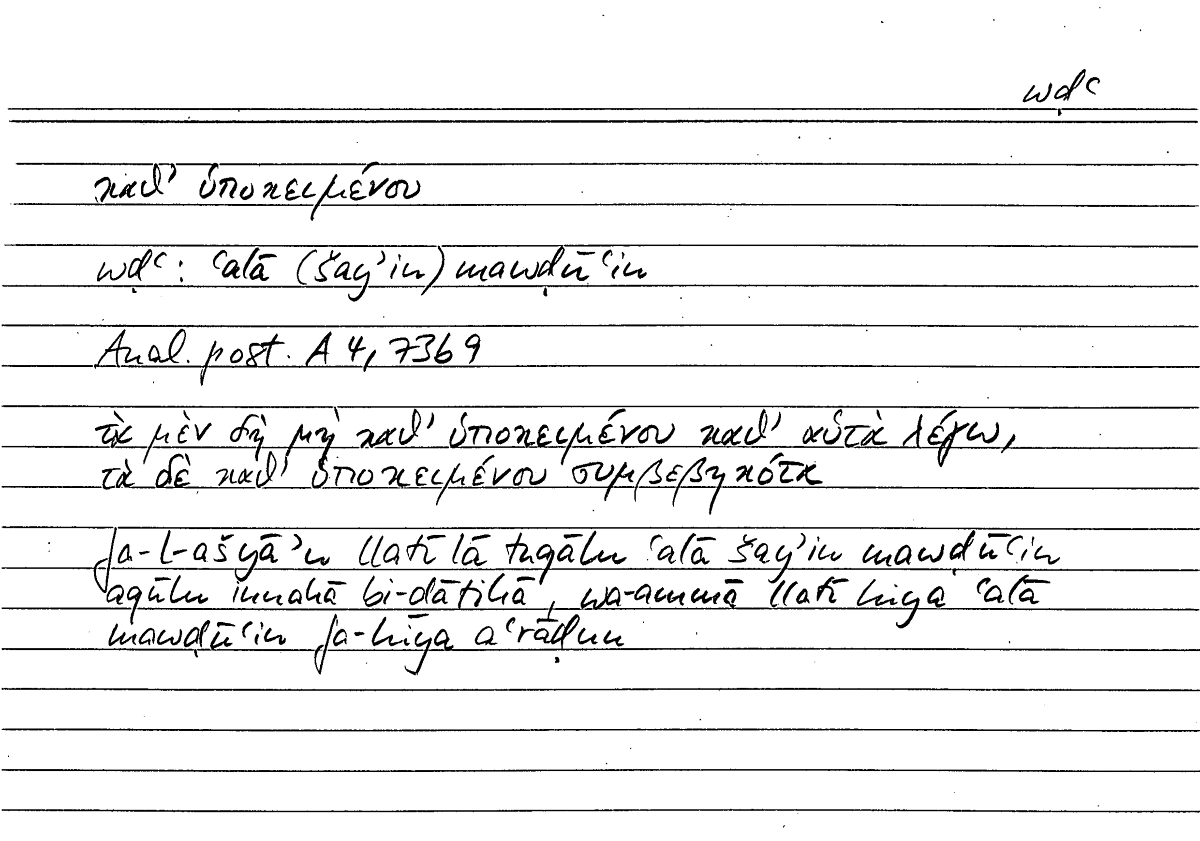 wḍʿ
καθ' ὑποκειμένου
wḍʿ: ʿalā (šayʾin) mawḍūʿin
Anal. post. A 4, 73b9
τὰ μὲν δὴ μὴ καθ' ὑποκειμένου καθ' αὑτὰ λέγω,
τὰ δὲ καθ' ὑποκειμένου συμβεβηκότα
fa-l-ašyāʾu llatī lā tuqālu ʿalā šayʾin mawḍūʿin
aqūlu innahā bi-ḏātihā, wa-ammā llatī hiya ʿalā
mawḍūʿin fa-hiya aʿrāḍun